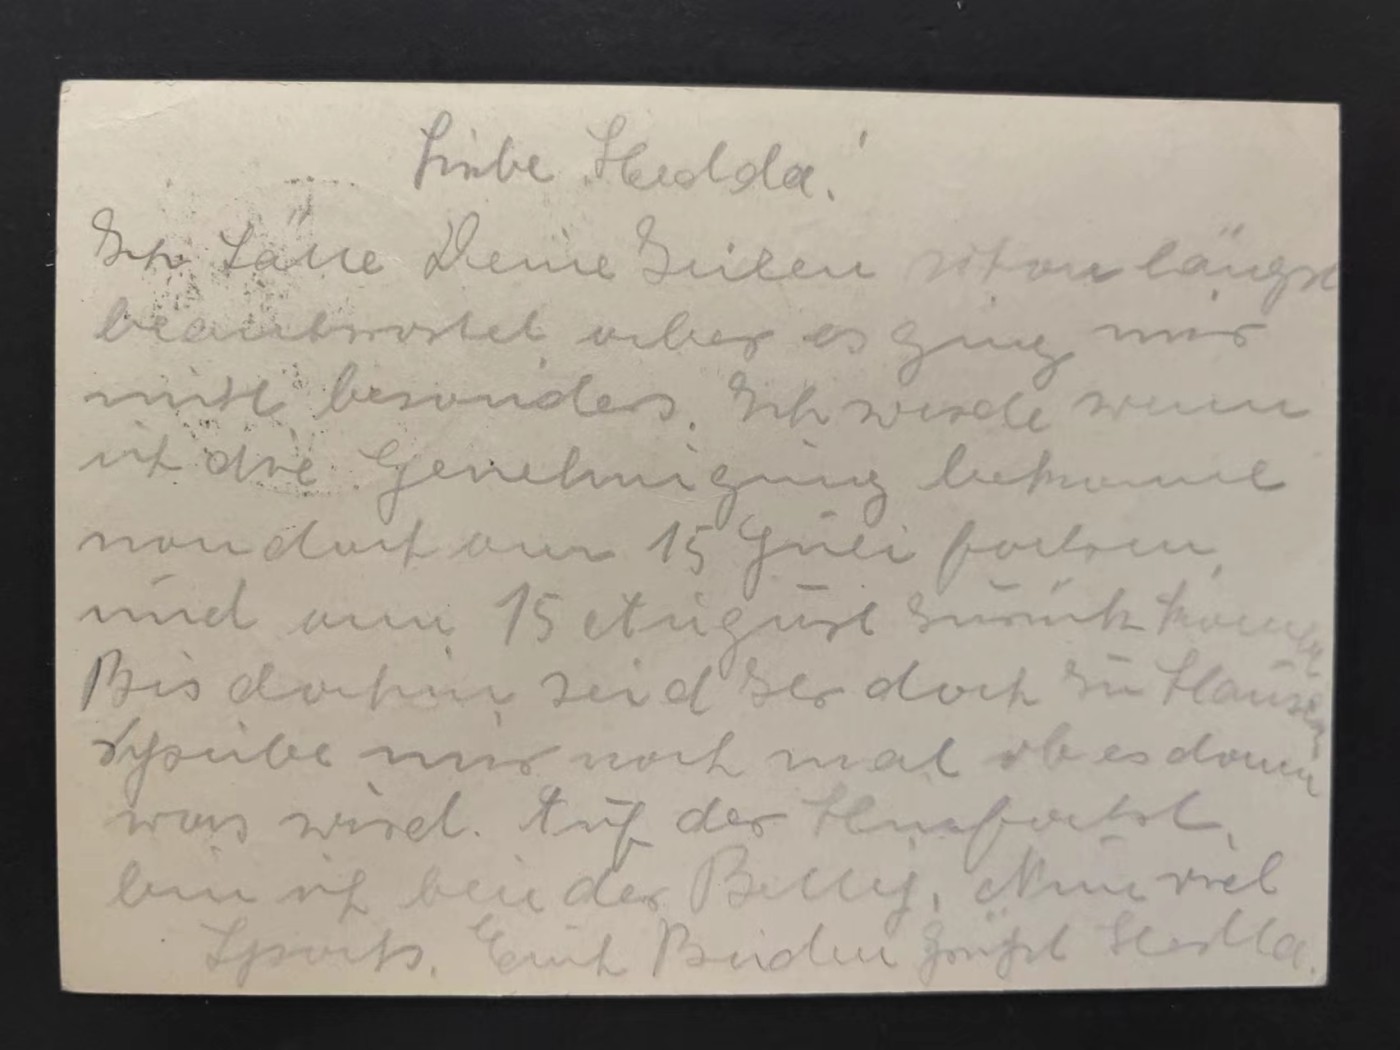 Liebe Hedda!
Ich hätte Deine Zeilen schon längst
beantwortet aber es ging mir
nicht besonders. Ich werde wenn
ich die Genehmigung bekomme
von dort am 15 Juli fahren
und am 15 August zurück kommen
Bis dahin seid Ihr doch zu Hause.
Schreibe mir noch mal ob es dann
was wird. Auf der Hinfahrt
bin ich bei der Nun viel
Euch Beiden grüßt Hedda.